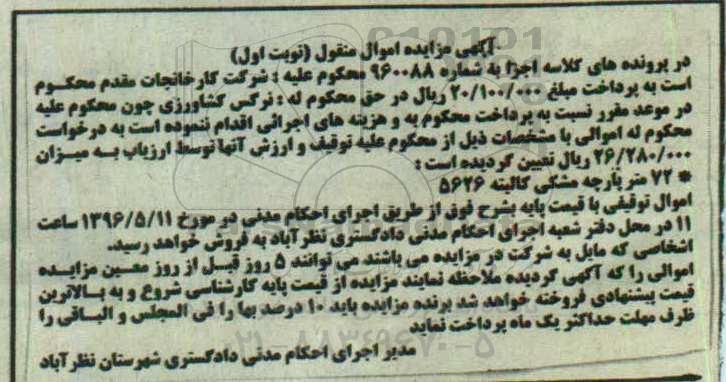 آگهی مزایده اموال منقول (نوبت اول)
در پرونده های کلاسه اجرا به شماره ۹۶۰۰۸۸ محکوم علیه : شرکت کارخانجات مقدم محکوم
است به پرداخت مبلغ ۲۰/۱۰۰/۰۰۰ ریال در حق محکوم له : نرگس کشاورزی چون محکوم علیه
در موعد مقرر نسبت به پرداخت محکوم به و هزینه های اجرائی اقدام ننموده است به درخواست
محکوم له اموالی با مشخصات ذیل از محکوم علیه توقیف و ارزش آنها توسط ارزیاب به میزان
۲۶/۲۸۰/۰۰۰ ریال تعیین گردیده است :
* ۷۲ متر پارچه مشکی کالیته ۵۶۲۶
اموال توقیفی با قیمت پایه بشرح فوق از طریق اجرای احکام مدنی در مورخ ۱۳۹۶/۵/۱۱ ساعت
۱۱ در محل دفتر شعبه اجرای احکام مدنی دادگستری نظرآباد به فروش خواهد رسید.
اشخاصی که مایل به شرکت در مزایده می باشند می توانند ۵ روز قبل از روز معین مزایده
اموالی را که آگهی گردیده ملاحظه نمایند مزایده از قیمت پایه کارشناسی شروع و به بالاترین
قیمت پیشنهادی فروخته خواهد شد برنده مزایده باید ۱۰ درصد بها را فی المجلس و الباقی را
ظرف مهلت حداکثر یک ماه پرداخت نماید
مدیر اجرای احکام مدنی دادگستری شهرستان نظرآباد
۰۲۱-۸۸۳۴۹۶۷۰-۵